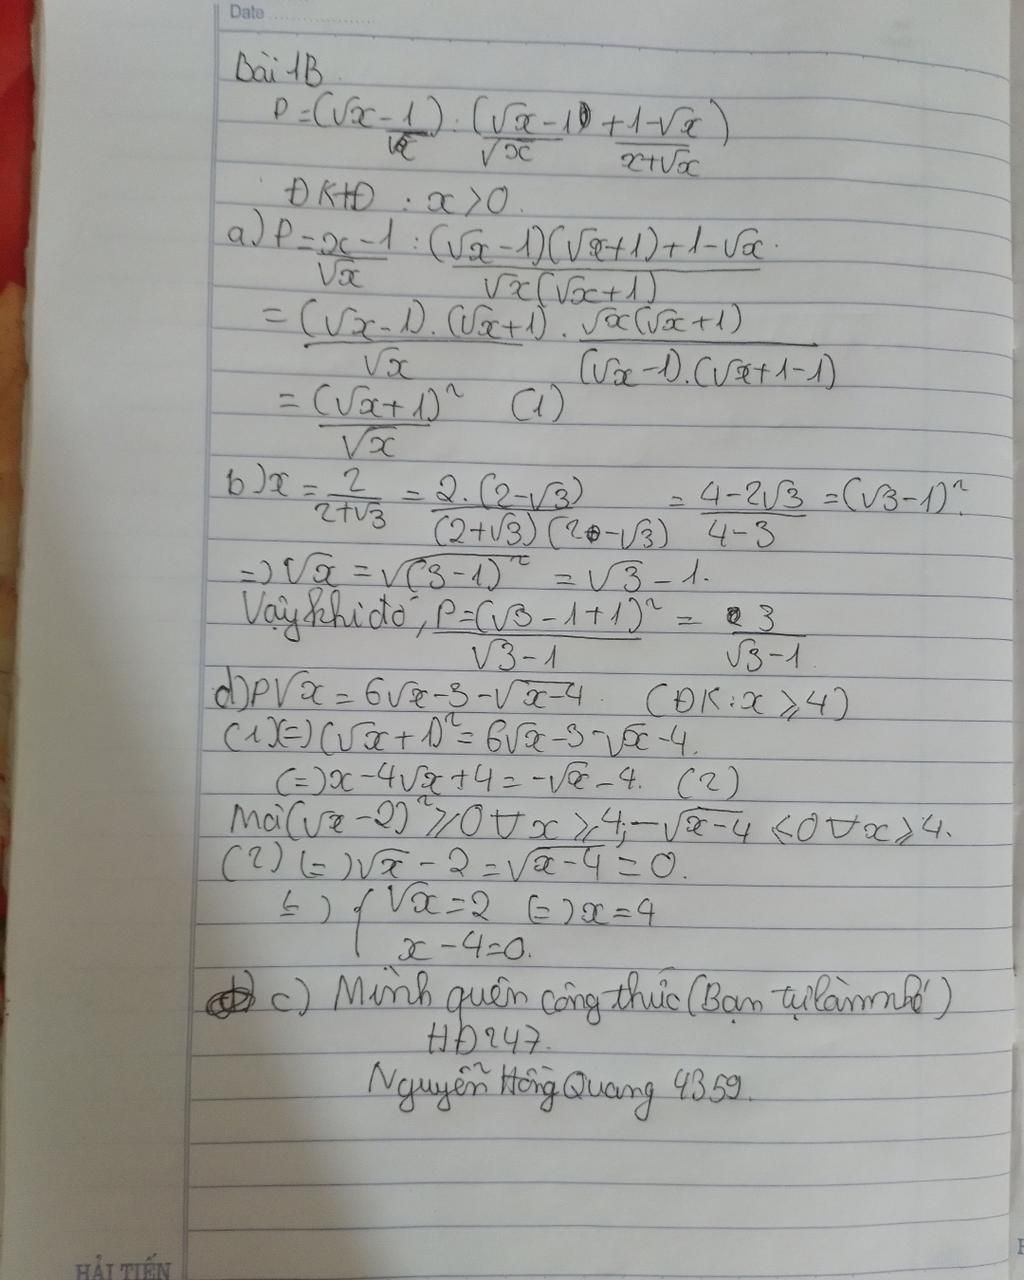 Date
Bài 1B
P = (√x - 1/√x) : ((√x - 1)/√x + (1 - √x)/(x + √x))
ĐKXĐ : x > 0.
a) P = (x - 1)/√x : ((√x - 1)(√x + 1) + 1 - √x)/(√x(√x + 1))
= ((√x - 1).(√x + 1))/√x . (√x(√x + 1))/((√x - 1).(√x + 1 - 1))
= (√x + 1)²/√x (1)
b) x = 2/(2 + √3) = (2.(2 - √3))/((2 + √3)(2 - √3)) = (4 - 2√3)/(4 - 3) = (√3 - 1)².
=> √x = √(3 - 1)² = √3 - 1.
Vậy khi đó, P = (√3 - 1 + 1)²/(√3 - 1) = 3/(√3 - 1)
d) P√x = 6√x - 3 - √(x - 4) (ĐK : x ⩾ 4)
(1) (=) (√x + 1)² = 6√x - 3 - √x - 4.
(=) x - 4√x + 4 = -√x - 4. (2)
Mà (√x - 2)² ⩾ 0 ∀ x ⩾ 4; -√(x - 4) ⩽ 0 ∀ x ⩾ 4.
(2) (=) √x - 2 = √(x - 4) = 0.
(=) { √x = 2 (=) x = 4
x - 4 = 0.
c) Mình quên công thức (Bạn tự làm nhé)
HĐ247.
Nguyễn Hồng Quang 4359.
HẢI TIẾN